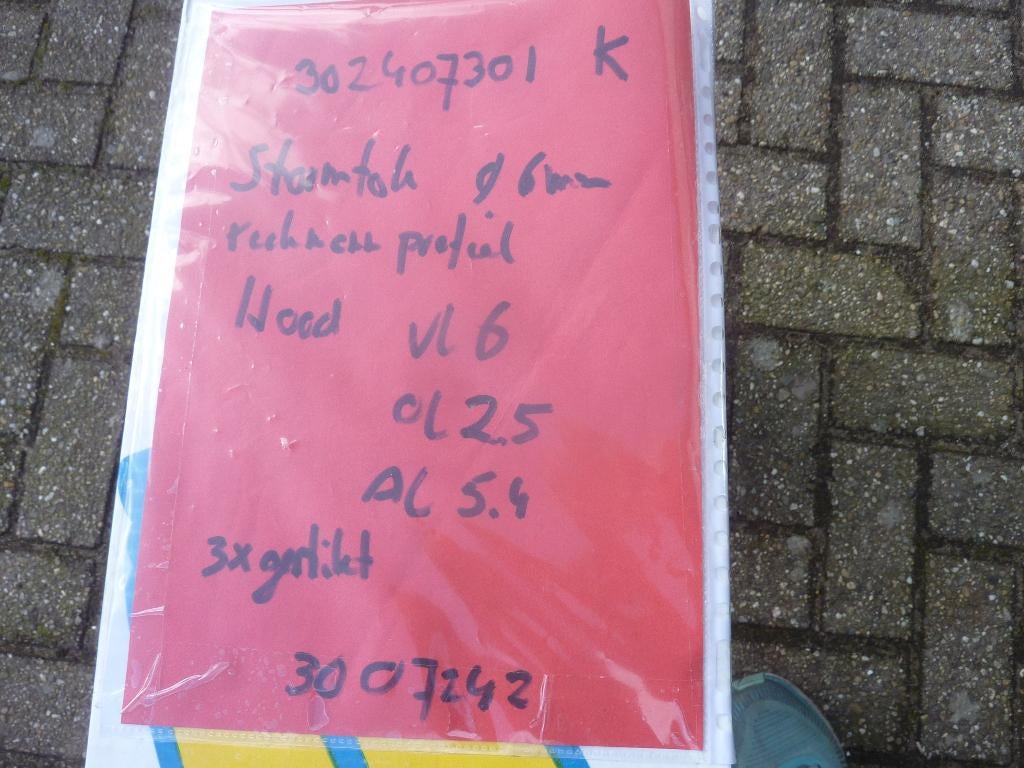 302407301 K
Stormtok Ø 6mm
profiel
Hood VL 6
OL 2.5
AL 5.4
3x gestikt
3007242